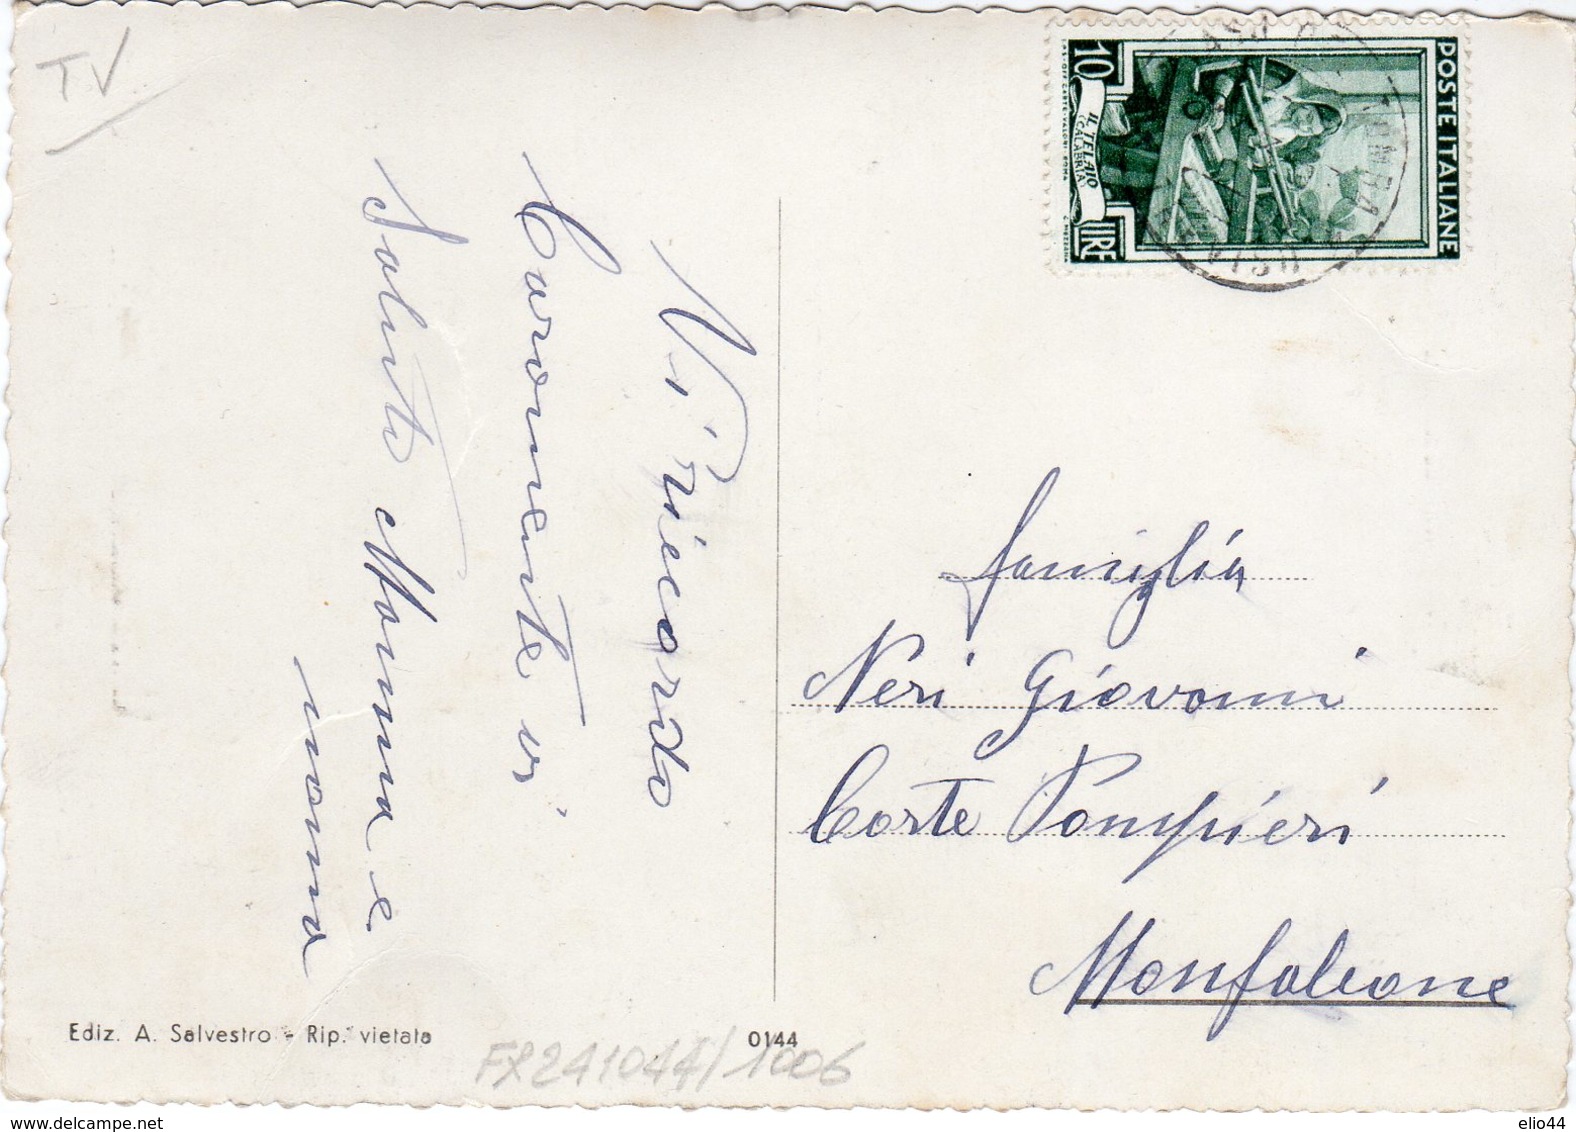 TV
POSTE ITALIANE
10 LIRE
IL TELAIO
(CALABRIA)
Vi ricordo
Caramente vi
Saluto Mamma e
nonna
famiglia
Neri Giovanni
Corte Pompieri
Monfalcone
Ediz. A. Salvestro - Rip. vietata
0144
FX241044/1006
www.delcampe.net
elio44